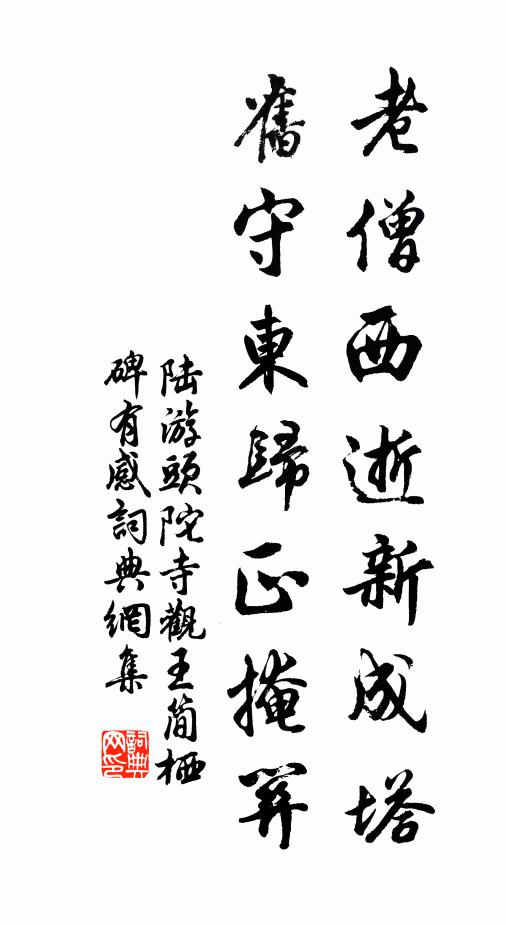 老僧西逝新成塔
舊守東歸正掩關
陆游頭陀寺觀王简栖
碑有感詞典網集
詞典
网印